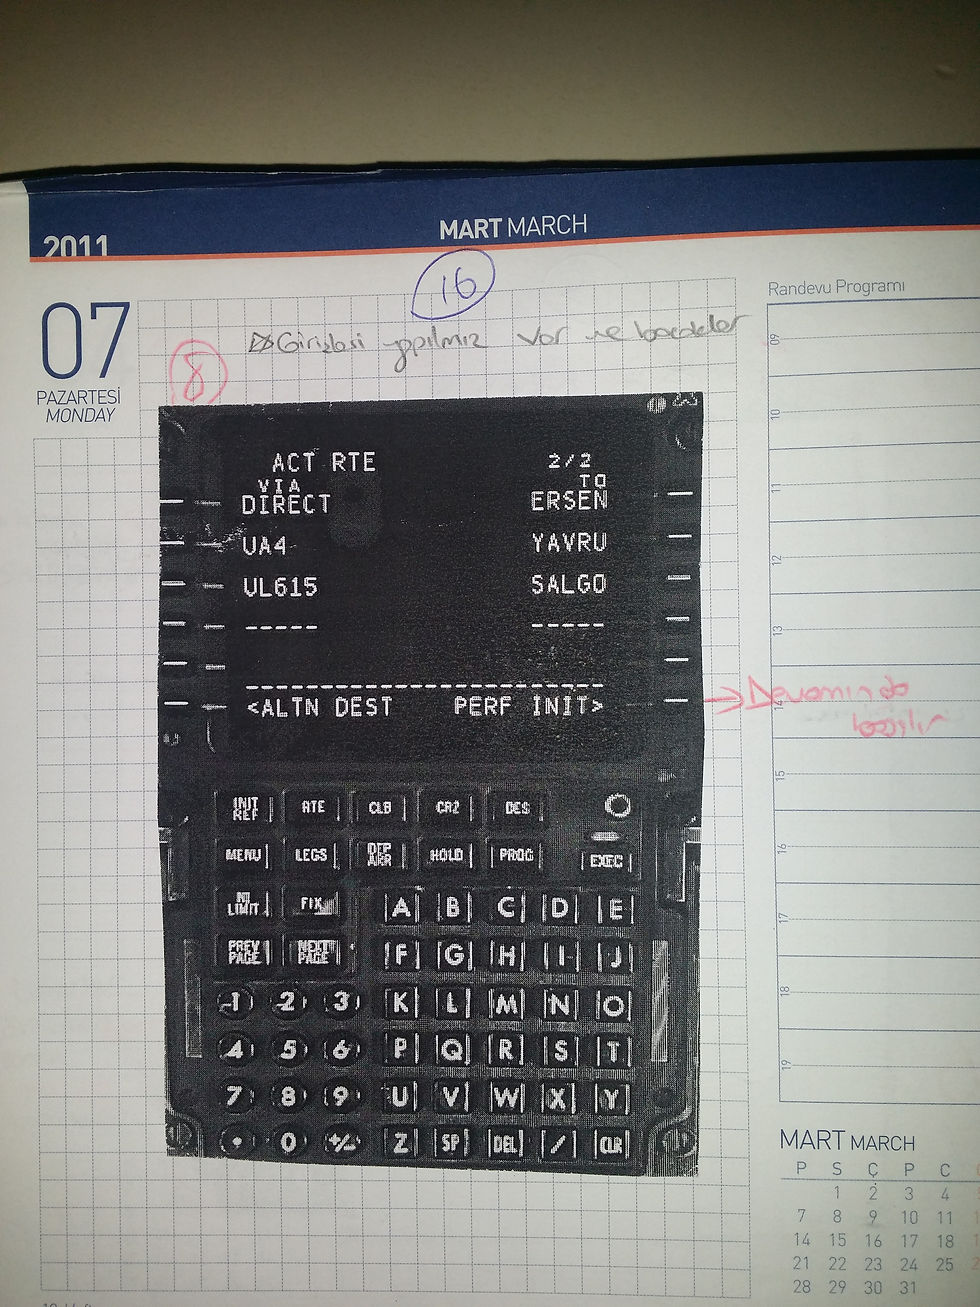 2011
MART MARCH
07
PAZARTESİ
MONDAY
16
8
Girişleri yapılmış var ve bacaklar
Randevu Programı
09
10
11
12
13
14
15
16
17
18
19
ACT RTE 2/2
VIA TO
DIRECT ERSEN
UA4 YAVRU
UL615 SALGO
----- -----
<ALTN DEST PERF INIT>
Devamında
basılır
INIT REF RTE CLB CRZ DES
MENU LEGS DEP ARR HOLD PROG EXEC
N1 LIMIT FIX A B C D E
PREV PAGE NEXT PAGE F G H I J
1 2 3 K L M N O
4 5 6 P Q R S T
7 8 9 U V W X Y
• 0 +/- Z SP DEL / CLR
MART MARCH
P S Ç P C
1 2 3 4
7 8 9 10 11
14 15 16 17 18
21 22 23 24 25
28 29 30 31